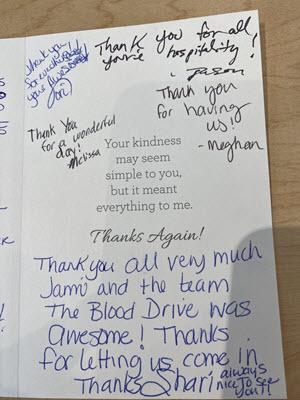 Thank you
for everything
your Awesome!
Lori
Thank you for all
you're
hospitality!
Jason
Thank you
for having
us!
- Meghan
Thank You
for a wonderful
day!
Melissa
Your kindness
may seem
simple to you,
but it meant
everything to me.
Thanks Again!
Thank you all very much
Jami and the team
The Blood Drive was
awesome! Thanks
for letting us come in
Thanks Shari
always
nice to see
you!!